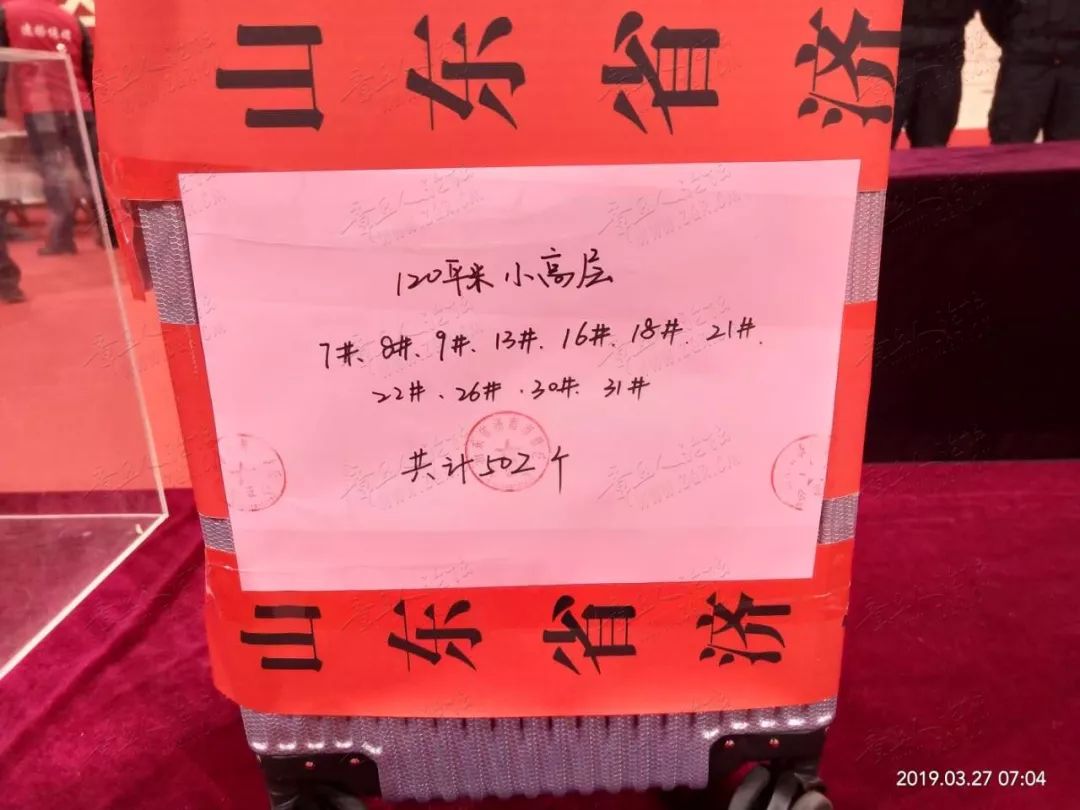 山东省济
120平米小高层
7#、8#、9#、13#、16#、18#、21#、
22#、26#、30#、31#
共计502个
山东省济
章丘人论坛
WWW.ZQR.CN
2019.03.27 07:04